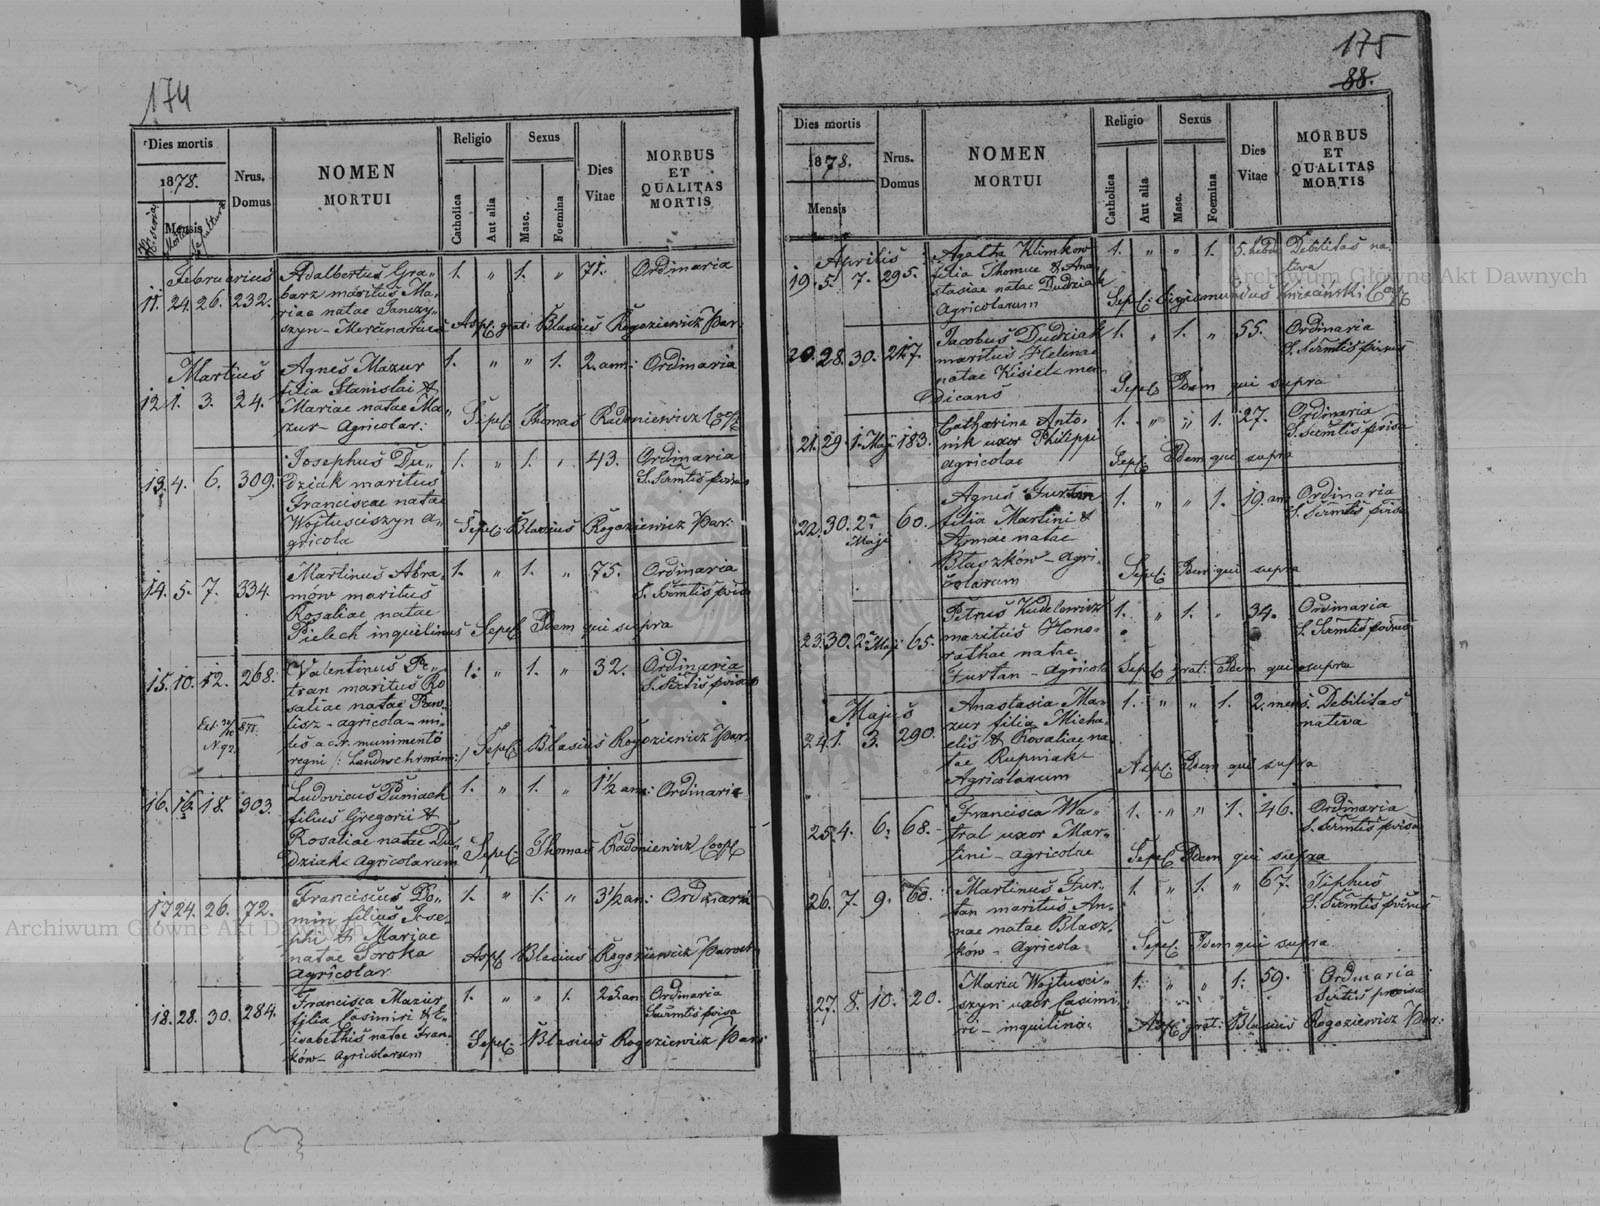 174
Dies mortis
1878.
Mensis
Nrus.
Domus
NOMEN
MORTUI
Religio
Catholica
Aut alia
Sexus
Masc.
Foemina
Dies
Vitae
MORBUS
ET
QUALITAS
MORTIS
Februarius
11. 24. 26. 232.
Adalbertus Gra-
barz maritus Ma-
riae natae Janczy-
szyn - Mercenarius
1. " 1. " 71. Ordinaria
Asp: grat: Blasius Rogoziewicz Par:
Martius
12. 1. 3. 24.
Agnes Mazur
filia Stanislai &
Mariae natae Ma-
zur - Agricolar:
1. " " 1. 2. ann: Ordinaria
Sepel: Thomas Radoniewicz Coop:
13. 4. 6. 309.
Josephus Du-
dziak maritus
Franciscae natae
Wojtusciszyn a-
gricola
1. " 1. " 43. Ordinaria
Sepel: Blasius Rogoziewicz Par:
14. 5. 7. 334.
Martinus Abra-
mow maritus
Rosaliae natae
Pielech inquilinus
1. " 1. " 75. Ordinaria
Sepel: Idem qui supra
15. 10. 12. 268.
Valentinus Pe-
tran maritus Ro
saliae natae
agricola - mi-
les a c.r. munimento
regni /: Landwehrmann :/
1. " 1. " 32. Ordinaria
Sepel: Blasius Rogoziewicz Par:
16. 16. 18. 303.
Ludovicus Puniach
filius Gregorii &
Rosaliae natae Du-
dziak Agricolarum
1. " 1. " 1 1/2 ann: Ordinaria
Sepel: Thomas Radoniewicz Coop:
17. 24. 26. 72.
Franciscus Do-
min filius Jose-
phi & Mariae
natae Soroka
Agricolar.
1. " 1. " 3 1/2 an: Ordinaria
Asp: Blasius Rogoziewicz Paroch:
18. 28. 30. 284.
Francisca Mazur
filia Casimiri & E-
lisabethis natae Fran-
ków - Agricolarum
1. " " 1. 25. an Ordinaria
Sepel: Blasius Rogoziewicz Par:
175
88.
Dies mortis
1878.
Mensis
Nrus.
Domus
NOMEN
MORTUI
Religio
Catholica
Aut alia
Sexus
Masc.
Foemina
Dies
Vitae
MORBUS
ET
QUALITAS
MORTIS
Aprilis
19. 5. 7. 295.
Agatha Klimkow
filia Thomae & Ana
stasiae natae Dudziak
Agricolarum
1. " " 1. 5. hebd: Debilitas na-
tiva
Sepel: Sigismundus Coop:
20. 28. 30. 217.
Jacobus Dudziak
maritus Helenae
natae Kisiel men
dicans
1. " 1. " 55. Ordinaria
Sepel: Idem qui supra
21. 29. 1. Maji 183.
Catharina Anto-
nik uxor Philippi
agricolae
1. " " 1. 27. Ordinaria
Sepel: Idem qui supra
22. 30. 2. Maji 60.
Agnes Furtan
filia Martini &
Annae natae
Błaszków - Agri-
colarum
1. " " 1. 19. ann Ordinaria
Sepel: Idem qui supra
23. 30. 2. Maji 65.
Petrus Kudelowicz
maritus Hono-
rathae natae
Furtan - Agricola
1. " 1. " 34. Ordinaria
Sepel: grat: Idem qui supra
Majus
24. 1. 3. 290.
Anastasia Ma-
zur filia Micha-
elis & Rosaliae na-
tae Rupniak
Agricolarum
1. " " 1. 2. mens. Debilitas
nativa
Asp: Idem qui supra
25. 4. 6. 68.
Francisca Wa-
tral uxor Mar-
tini - agricolae
1. " " 1. 46. Ordinaria
Sepel: Idem qui supra
26. 7. 9. 60.
Martinus Fur-
tan maritus An-
nae natae Błasz-
ków - Agricola
1. " 1. " 67. Tiphus
Sepel: Idem qui supra
27. 8. 10. 20.
Maria Wojtusci-
szyn uxor Casimi-
ri - inquilina
1. " " 1. 59. Ordinaria
Asp: grat: Blasius Rogoziewicz Par:
Archiwum Główne Akt Dawnych
Archiwum Główne Akt Dawnych